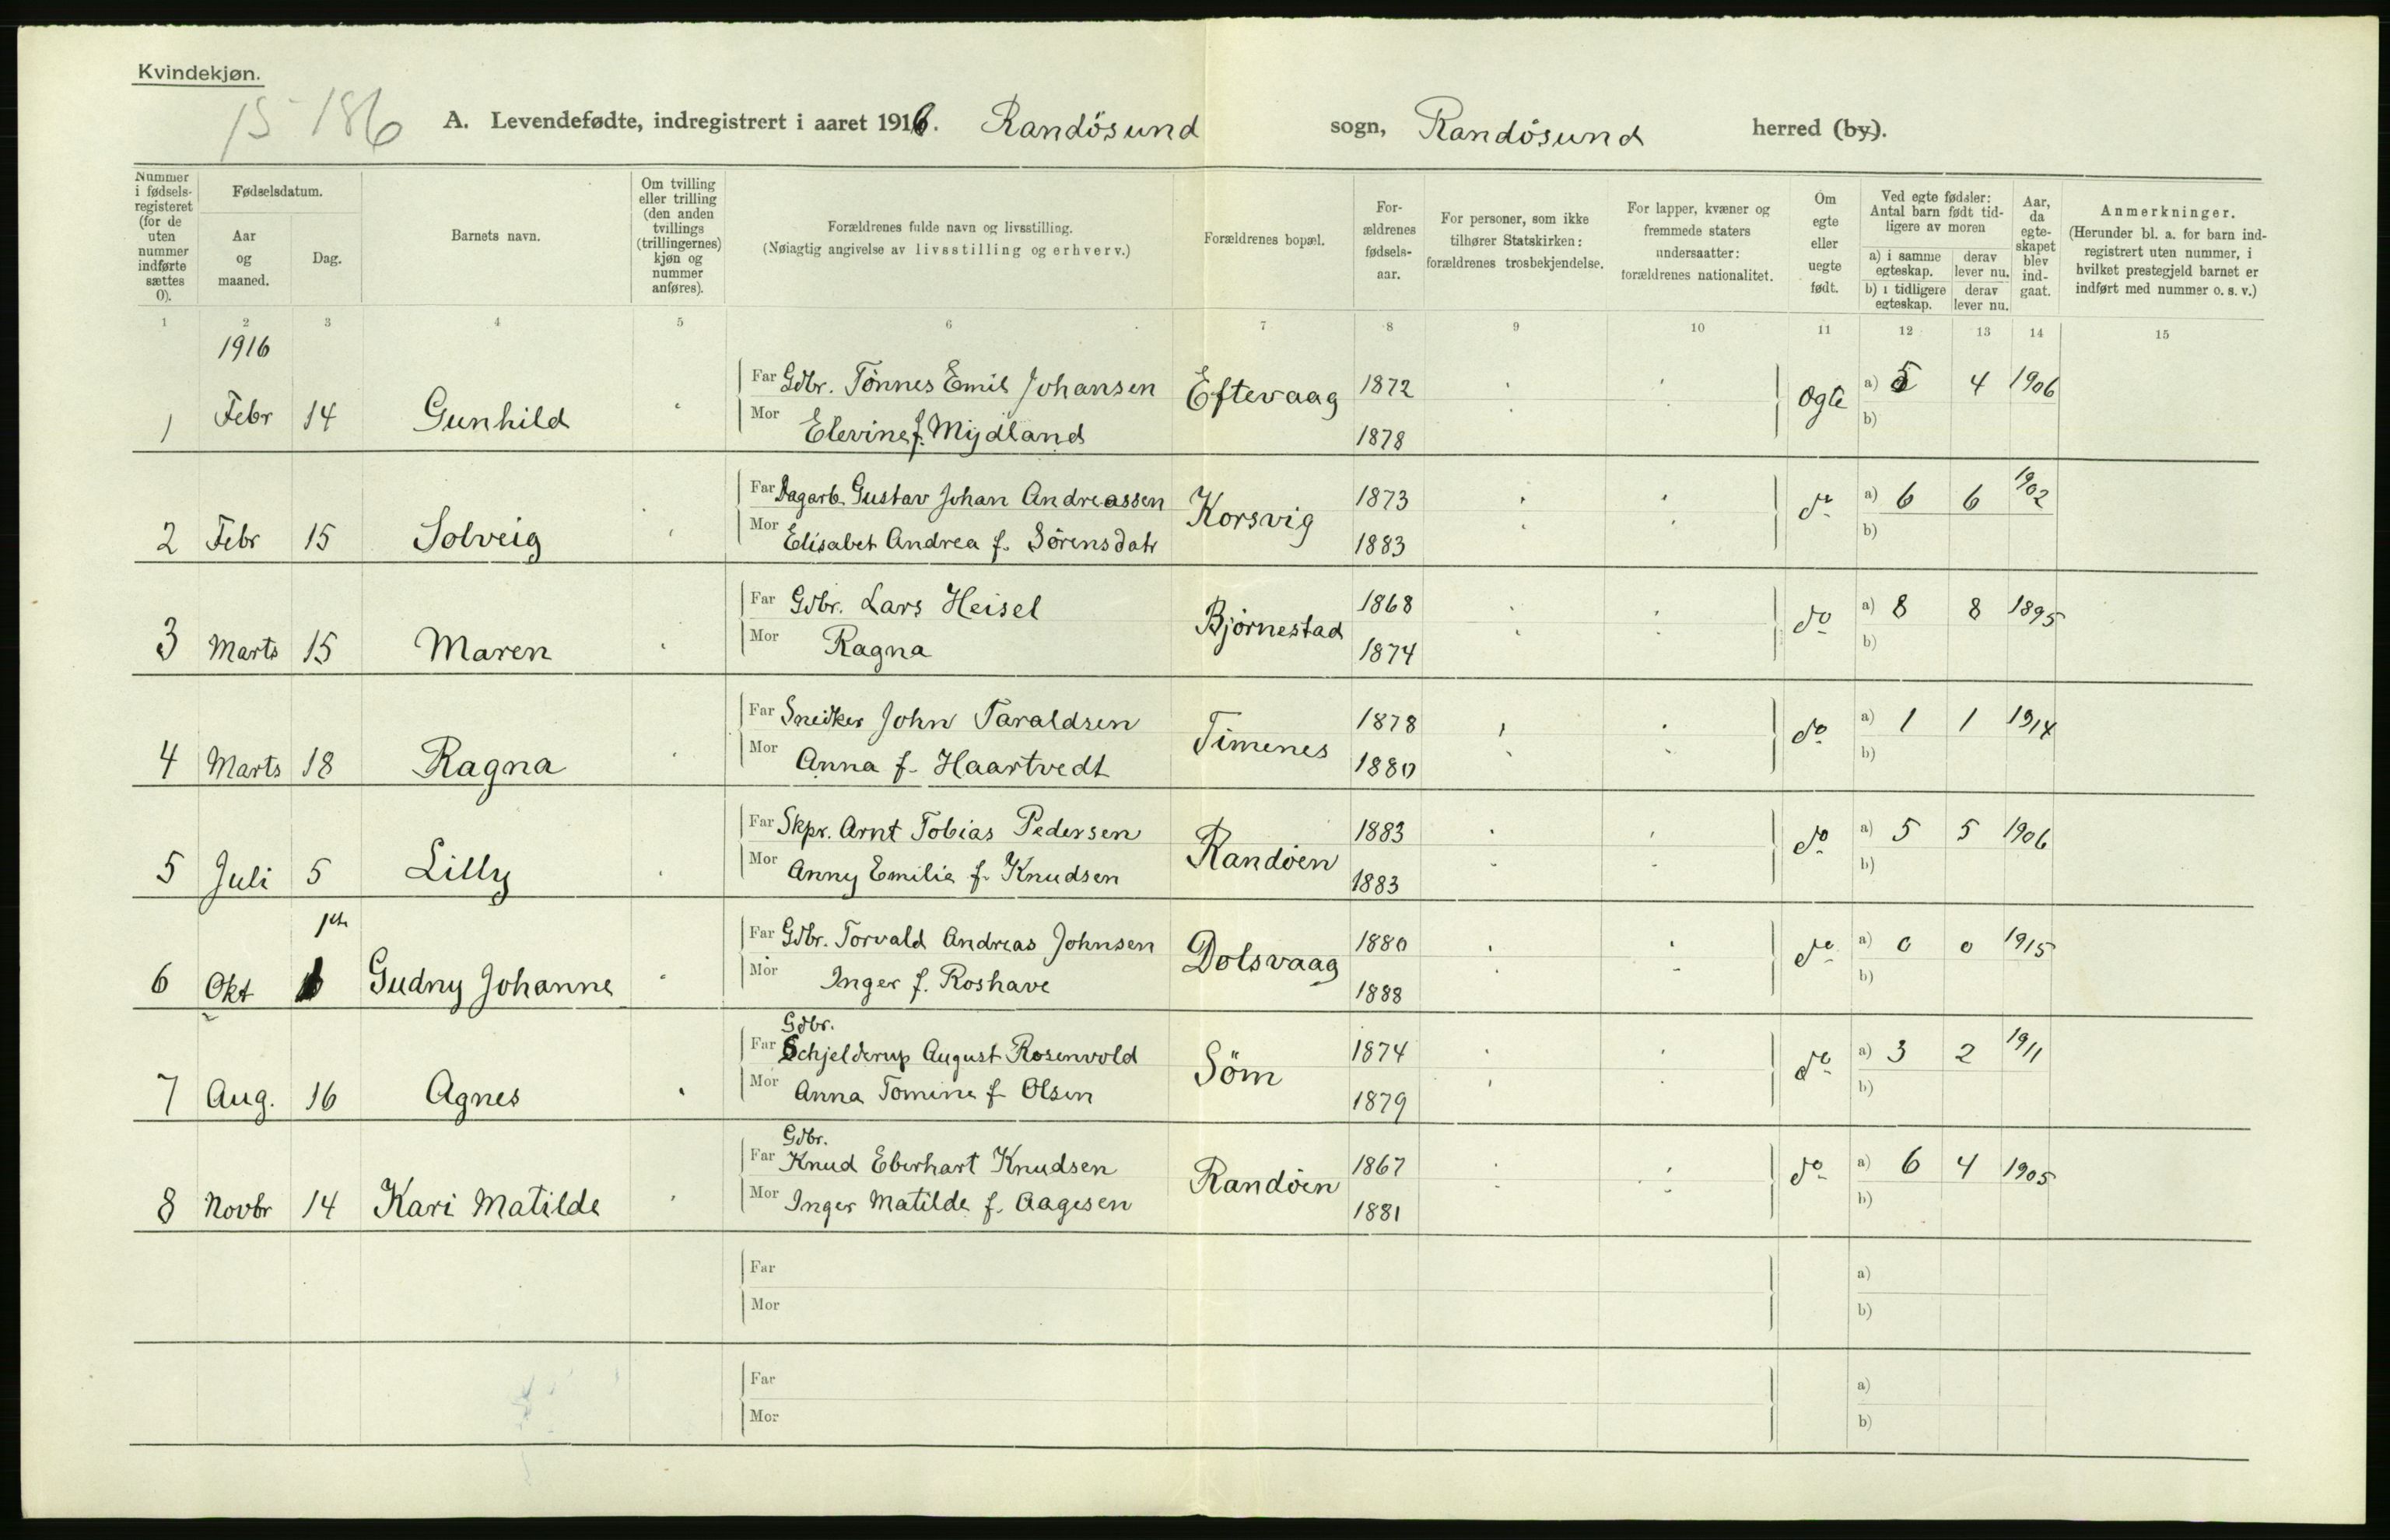 Kvindekjøn.
15-186
A. Levendefødte, indregistrert i aaret 1916. Randösund sogn, Randösund herred (by).
Nummer i fødselsregisteret (for de uten nummer indførte sættes 0).
Fødselsdatum.
Aar og maaned.
Dag.
Barnets navn.
Om tvilling eller trilling (den anden tvillings (trillingernes) kjøn og nummer anføres).
Forældrenes fulde navn og livsstilling.
(Nøiagtig angivelse av livsstilling og erhverv.)
Forældrenes bopæl.
Forældrenes fødselsaar.
For personer, som ikke tilhører Statskirken: forældrenes trosbekjendelse.
For lapper, kvæner og fremmede staters undersaatter: forældrenes nationalitet.
Om egte eller uegte født.
Ved egte fødsler: Antal barn født tidligere av moren
a) i samme egteskap. derav lever nu.
b) i tidligere egteskap. derav lever nu.
Aar, da egteskapet blev indgaat.
Anmerkninger.
(Herunder bl. a. for barn indregistrert uten nummer, i hvilket prestegjeld barnet er indført med nummer o. s. v.)
1 2 3 4 5 6 7 8 9 10 11 12 13 14 15
1916
Far Gdbr. Tönnes Emil Johansen Eftevaag 1872 a) 5 4 1906
1 Febr 14 Gunhild Mor Elevine f. Mydland 1878 Ogte b)
Far Dagarb. Gustav Johan Andreassen Korsvig 1873 a) 6 6 1902
2 Febr 15 Solveig Mor Elisabet Andrea f. Sörensdatr 1883 do b)
Far Gdbr. Lars Heisel Björnestad 1868 a) 8 8 1895
3 Marts 15 Maren Mor Ragna 1874 do b)
Far Snedker John Taraldsen Timenes 1878 a) 1 1 1914
4 Marts 18 Ragna Mor Anna f. Haartvedt 1880 do b)
Far Skpr. Arnt Tobias Pedersen Randöen 1883 a) 5 5 1906
5 Juli 5 Lilly Mor Anny Emilie f. Knudsen 1883 do b)
Far Gdbr. Torvald Andreas Johnsen Dolsvaag 1880 a) 0 0 1915
6 Okt 1 Gudny Johanne Mor Inger f. Roshave 1888 do b)
Gdbr.
Far Schjelderup August Rosenvold Söm 1874 a) 3 2 1911
7 Aug. 16 Agnes Mor Anna Tomine f. Olsen 1879 do b)
Gdbr.
Far Knud Eberhart Knudsen Randöen 1867 a) 6 4 1905
8 Novbr 14 Kari Matilde Mor Inger Matilde f. Aagesen 1881 do b)
Far a)
Mor b)
Far a)
Mor b)